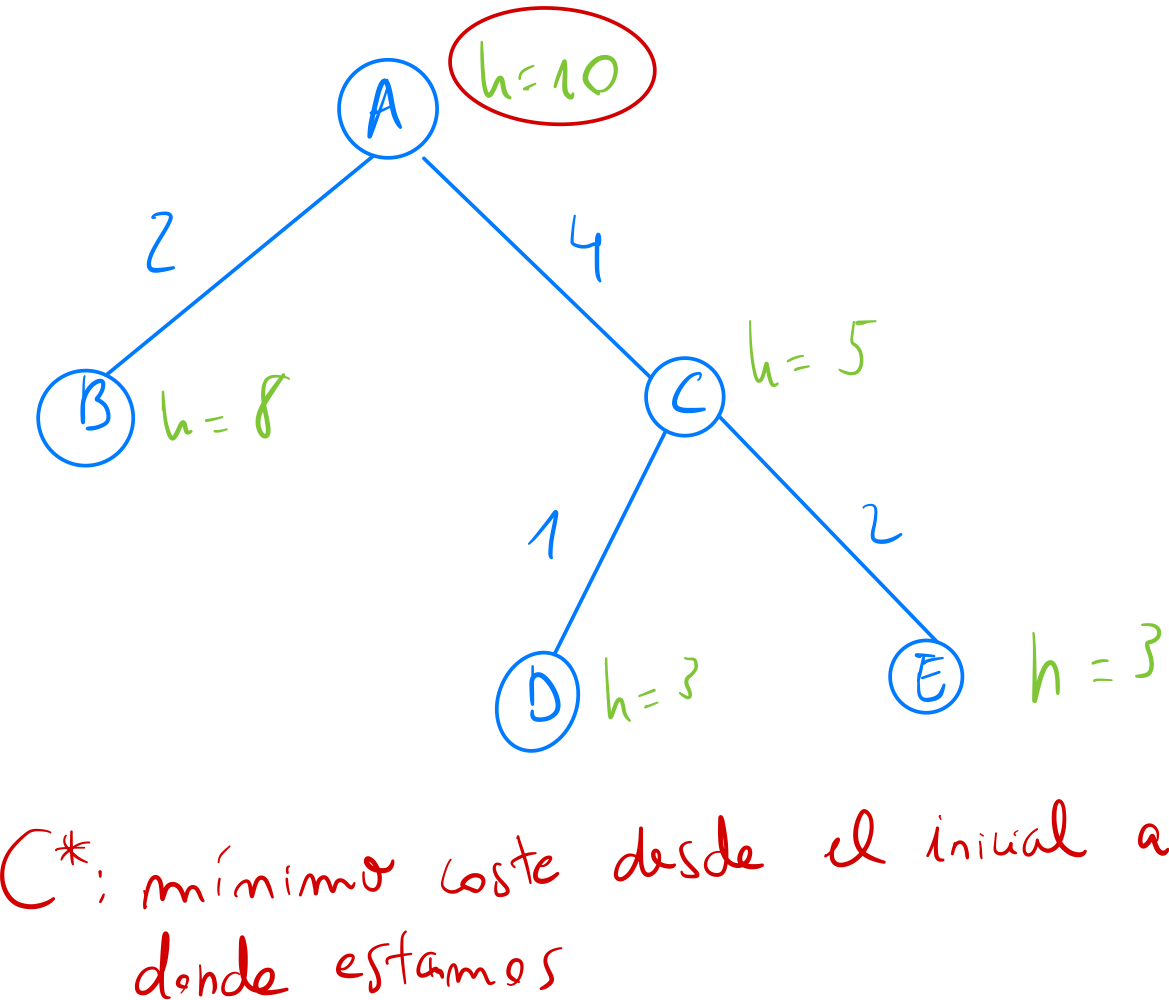 A h=10
2 4
B h=8 C h=5
1 2
D h=3 E h=3
C*: mínimo coste desde el inicial a
donde estamos